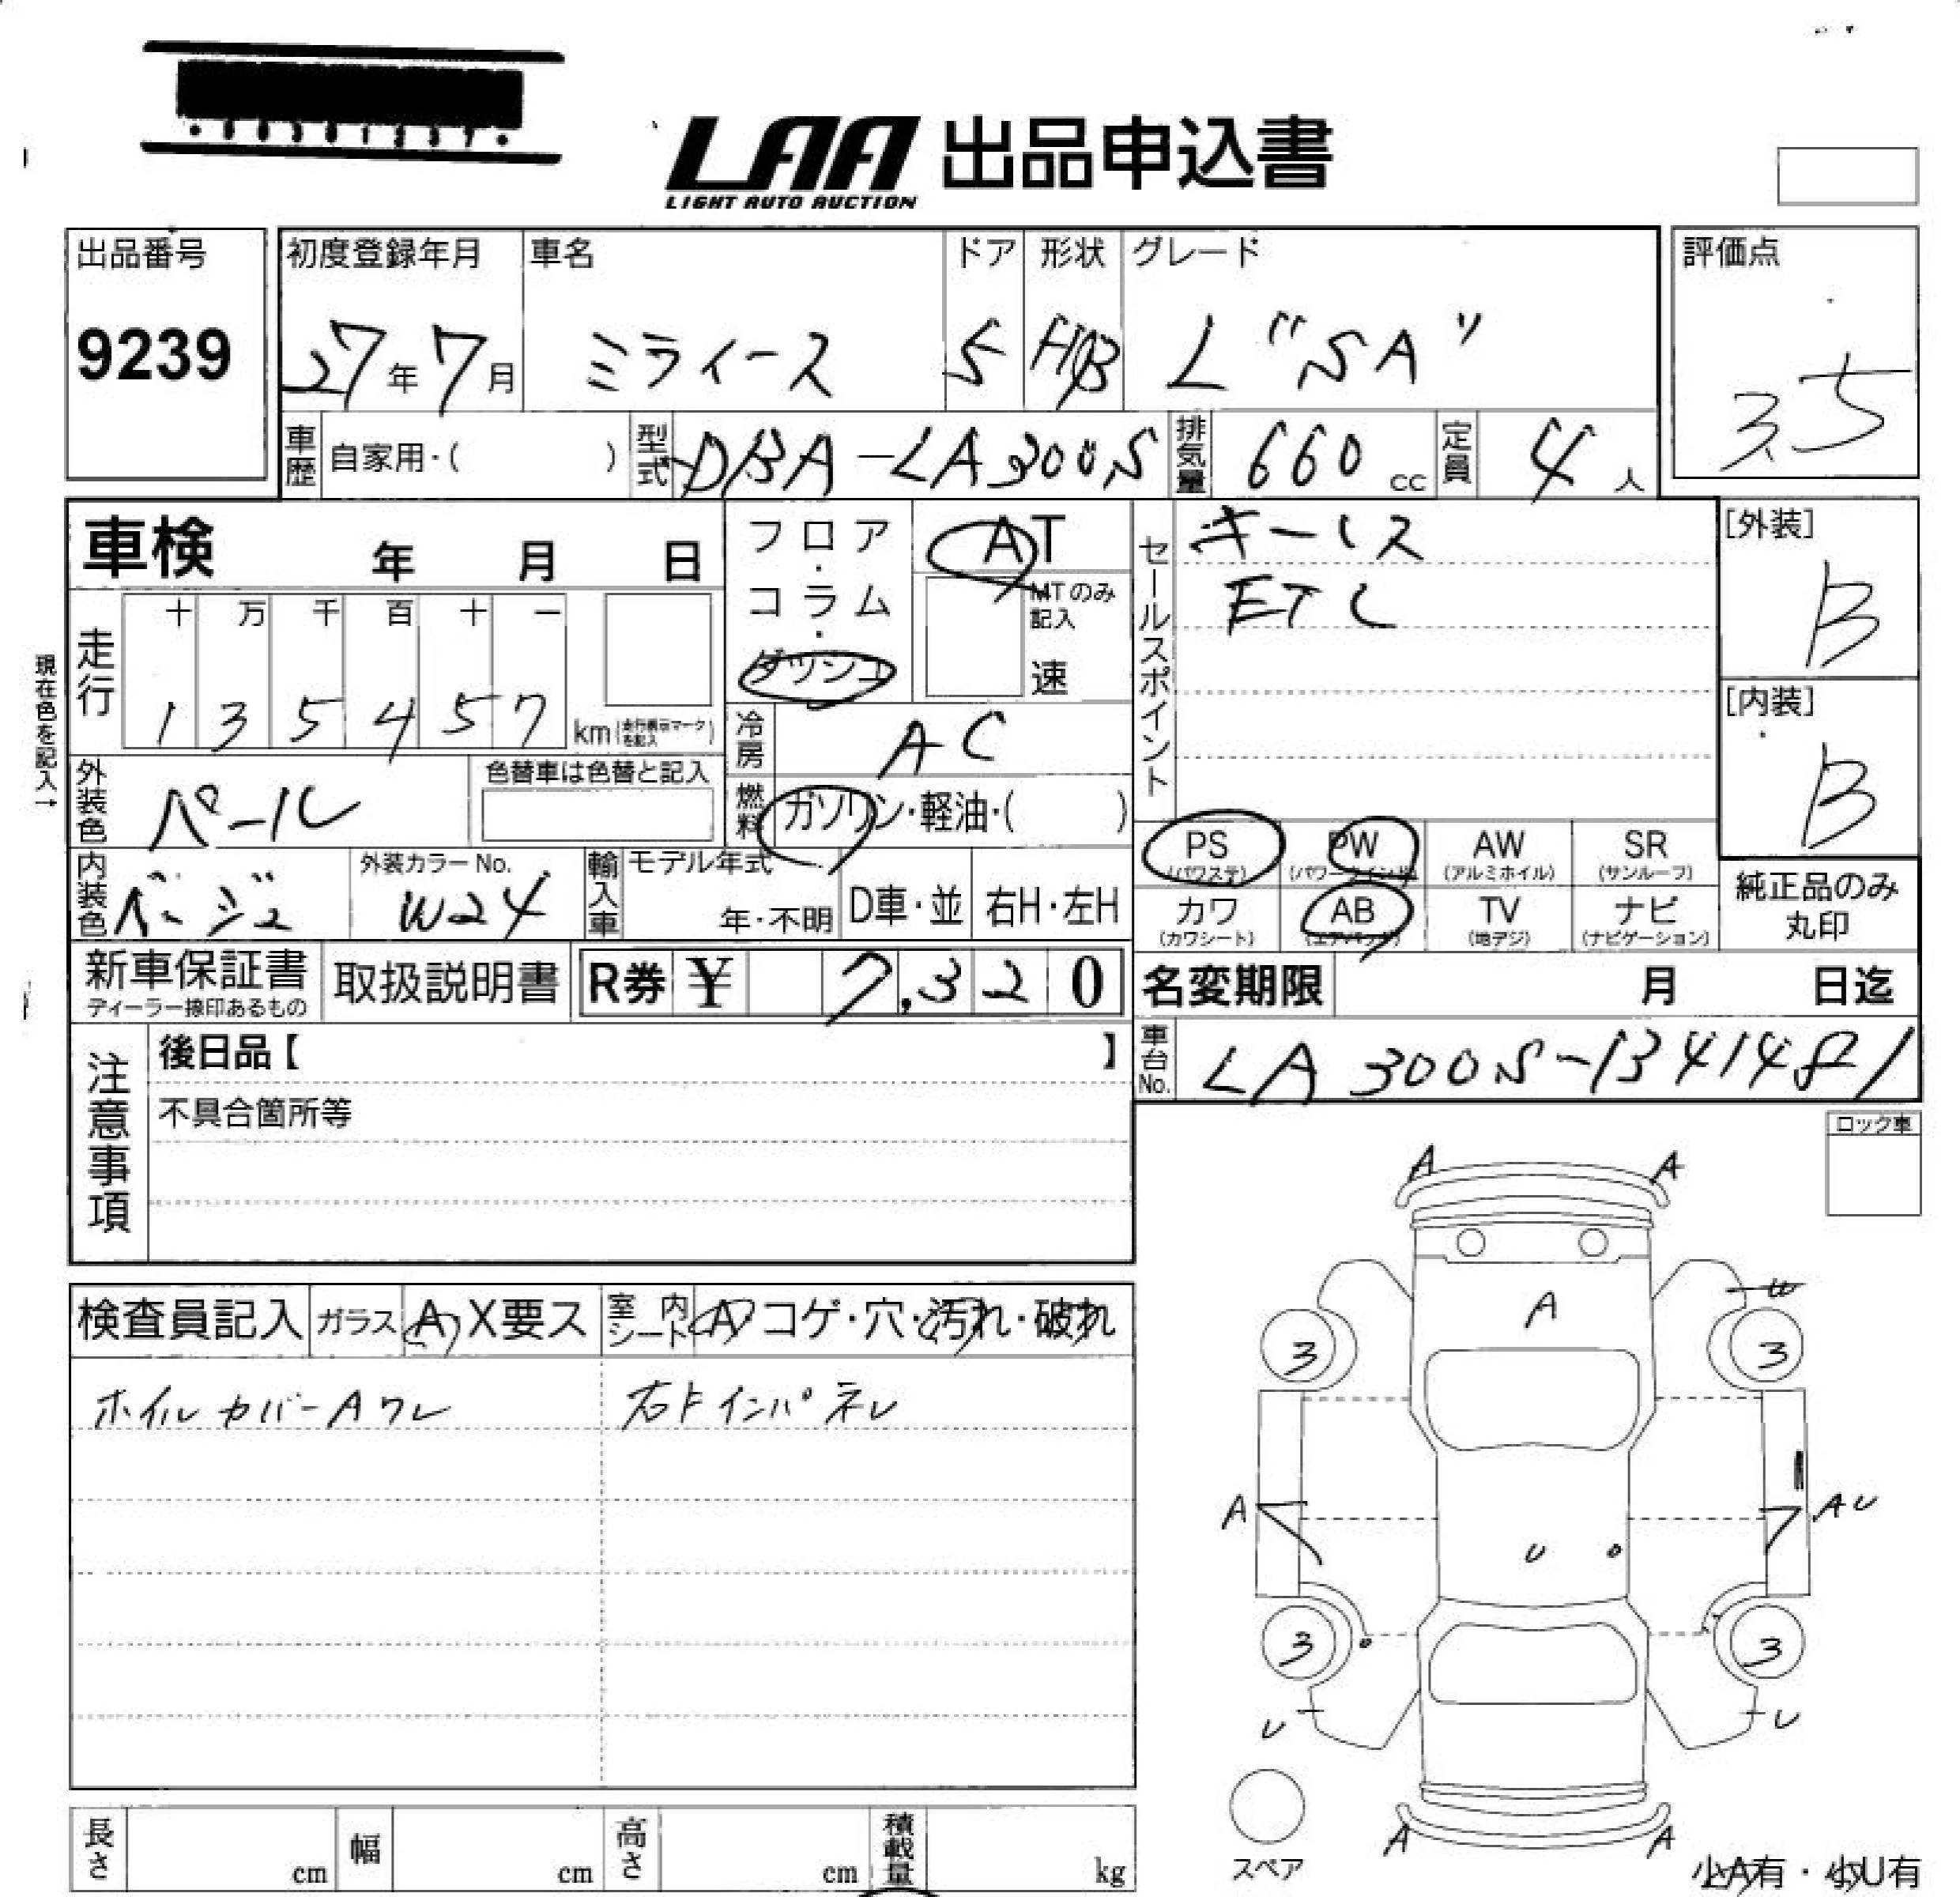 LAA 出品申込書
LIGHT AUTO AUCTION
出品番号
9239
初度登録年月
27年7月
車名
ミライース
ドア
5
形状
H/B
グレード
L "SA"
評価点
3.5
車歴 自家用・( )
型式 DBA-LA300S
排気量 660 cc
定員 4 人
車検 年 月 日
フロア・コラム・ダッシュ
AT
MTのみ記入
速
セールスポイント
キーレス
ETC
[外装]
B
[内装]
B
現在色を記入→
走行
十 万 千 百 十 一
1 3 5 4 5 7
km (走行表示マークを記入)
冷房 AC
外装色 パール
色替車は色替と記入
燃料 ガソリン・軽油・( )
PS (パワステ)
PW (パワーウインドウ)
AW (アルミホイル)
SR (サンルーフ)
カワ (カワシート)
AB (エアバッグ)
TV (地デジ)
ナビ (ナビゲーション)
純正品のみ
丸印
内装色 ベージュ
外装カラーNo.
W24
輸入車 モデル年式
年・不明
D車・並
右H・左H
新車保証書
ディーラー捺印あるもの
取扱説明書
R券 ¥ 7,320
名変期限 月 日迄
車台No. LA300S-1341481
注意事項
後日品【 】
不具合箇所等
ロック車
検査員記入
ガラス A X要ス
室内シート A コゲ・穴・汚れ・破れ
ホイルカバーAワレ
右Fインパネレ
A A
A
3 3
A AU
U
3 3
U U
A A
スペア
長さ cm
幅 cm
高さ cm
積載量 kg
小A有・小U有